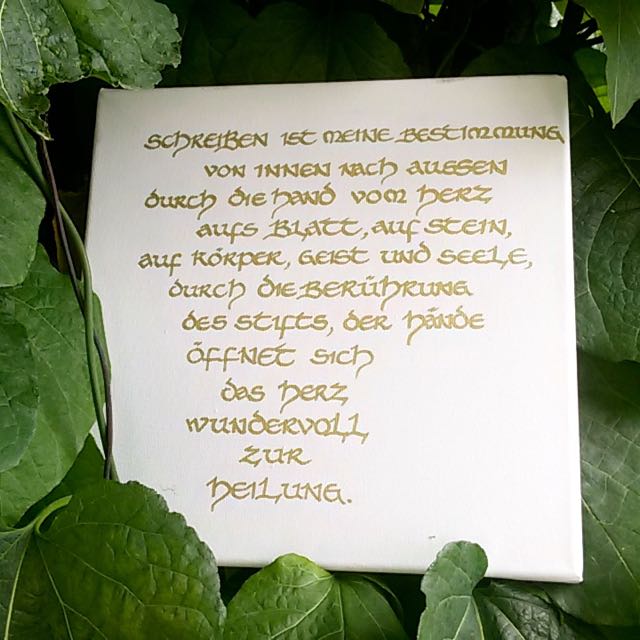 SCHREIBEN IST MEINE BESTIMMUNG
VON INNEN NACH AUSSEN
durch die HAND VOM HERZ
AUFS BLATT, AUF STEIN,
AUF KÖRPER, GEIST UND SEELE,
durch die BERÜHRUNG
DES STIFTS, DER HÄNDE
ÖFFNET SICH
das HERZ
WUNDERVOLL
ZUR
HEILUNG.